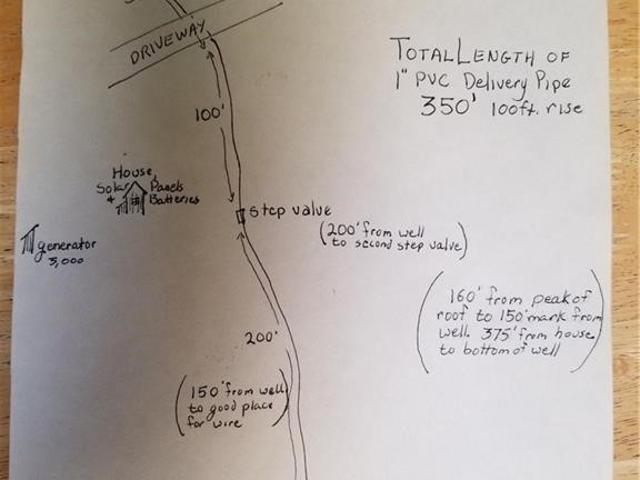 DRIVEWAY
TOTAL LENGTH OF
1" PVC Delivery Pipe
350' 100ft. rise
100'
House,
Solar Panels
+ Batteries
step valve
(200' from well
to second step valve)
generator
3,000
(160' from peak of
roof to 150' mark from
well. 375' from house
to bottom of well)
200'
(150' from well
to good place
for wire)